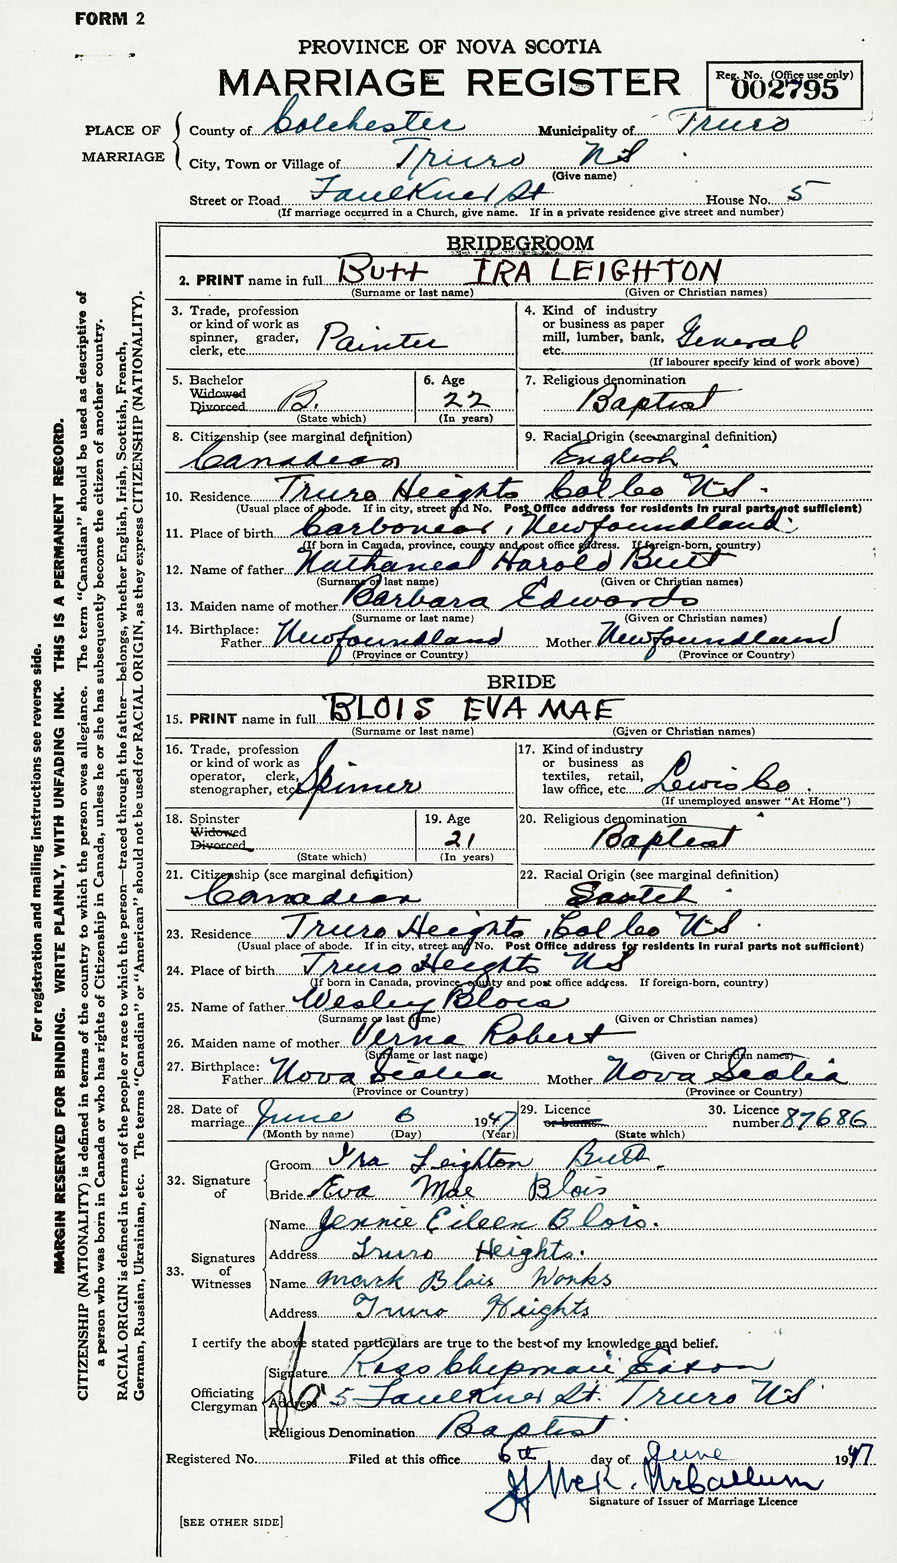 FORM 2
PROVINCE OF NOVA SCOTIA
MARRIAGE REGISTER
Reg. No. (Office use only)
002795
PLACE OF MARRIAGE
County of Colchester Municipality of Truro
City, Town or Village of Truro NS
(Give name)
Street or Road Faulkner St House No. 5
(If marriage occurred in a Church, give name. If in a private residence give street and number)
BRIDEGROOM
2. PRINT name in full Butt IRA LEIGHTON
(Surname or last name) (Given or Christian names)
3. Trade, profession or kind of work as spinner, grader, clerk, etc. Painter
4. Kind of industry or business as paper mill, lumber, bank, etc. General
(If labourer specify kind of work above)
5. Bachelor Widowed Divorced B.
(State which)
6. Age 22
(In years)
7. Religious denomination
Baptist
8. Citizenship (see marginal definition)
Canadian
9. Racial Origin (see marginal definition)
English
10. Residence Truro Heights Col Co NS.
(Usual place of abode. If in city, street and No. Post Office address for residents in rural parts not sufficient)
11. Place of birth Carbonear, Newfoundland.
(If born in Canada, province, county and post office address. If foreign-born, country)
12. Name of father Nathaneal Harold Butt
(Surname or last name) (Given or Christian names)
13. Maiden name of mother Barbara Edwards
(Surname or last name) (Given or Christian names)
14. Birthplace: Father Newfoundland Mother Newfoundland
(Province or Country) (Province or Country)
BRIDE
15. PRINT name in full BLOIS EVA MAE
(Surname or last name) (Given or Christian names)
16. Trade, profession or kind of work as operator, clerk, stenographer, etc. Spinner
17. Kind of industry or business as textiles, retail, law office, etc. Lewis Co.
(If unemployed answer "At Home")
18. Spinster Widowed Divorced
(State which)
19. Age 21
(In years)
20. Religious denomination
Baptist
21. Citizenship (see marginal definition)
Canadian
22. Racial Origin (see marginal definition)
Scotch
23. Residence Truro Heights, Col Co NS
(Usual place of abode. If in city, street and No. Post Office address for residents in rural parts not sufficient)
24. Place of birth Truro Heights NS
(If born in Canada, province, county and post office address. If foreign-born, country)
25. Name of father Wesley Blois
(Surname or last name) (Given or Christian names)
26. Maiden name of mother Verna Robert
(Surname or last name) (Given or Christian names)
27. Birthplace: Father Nova Scotia Mother Nova Scotia
(Province or Country) (Province or Country)
28. Date of marriage June 6 1947
(Month by name) (Day) (Year)
29. Licence or banns
(State which)
30. Licence number 87686
32. Signature of
Groom Ira Leighton Butt.
Bride Eva Mae Blois
33. Signatures of Witnesses
Name Jennie Eileen Blois.
Address Truro Heights.
Name Mark Blois Wonks
Address Truro Heights
I certify the above stated particulars are true to the best of my knowledge and belief.
Officiating Clergyman
Signature Ross Chipman Eaton
Address 5 Faulkner St. Truro NS
Religious Denomination Baptist
Registered No. Filed at this office 6th day of June 1947
McCallum
Signature of Issuer of Marriage Licence
[SEE OTHER SIDE]
For registration and mailing instructions see reverse side.
MARGIN RESERVED FOR BINDING. WRITE PLAINLY, WITH UNFADING INK. THIS IS A PERMANENT RECORD.
CITIZENSHIP (NATIONALITY) is defined in terms of the country to which the person owes allegiance. The term "Canadian" should be used as descriptive of
a person who was born in Canada or who has rights of Citizenship in Canada, unless he or she has subsequently become the citizen of another country.
RACIAL ORIGIN is defined in terms of the people or race to which the person—traced through the father—belongs, whether English, Irish, Scottish, French,
German, Russian, Ukrainian, etc. The terms "Canadian" or "American" should not be used for RACIAL ORIGIN, as they express CITIZENSHIP (NATIONALITY).